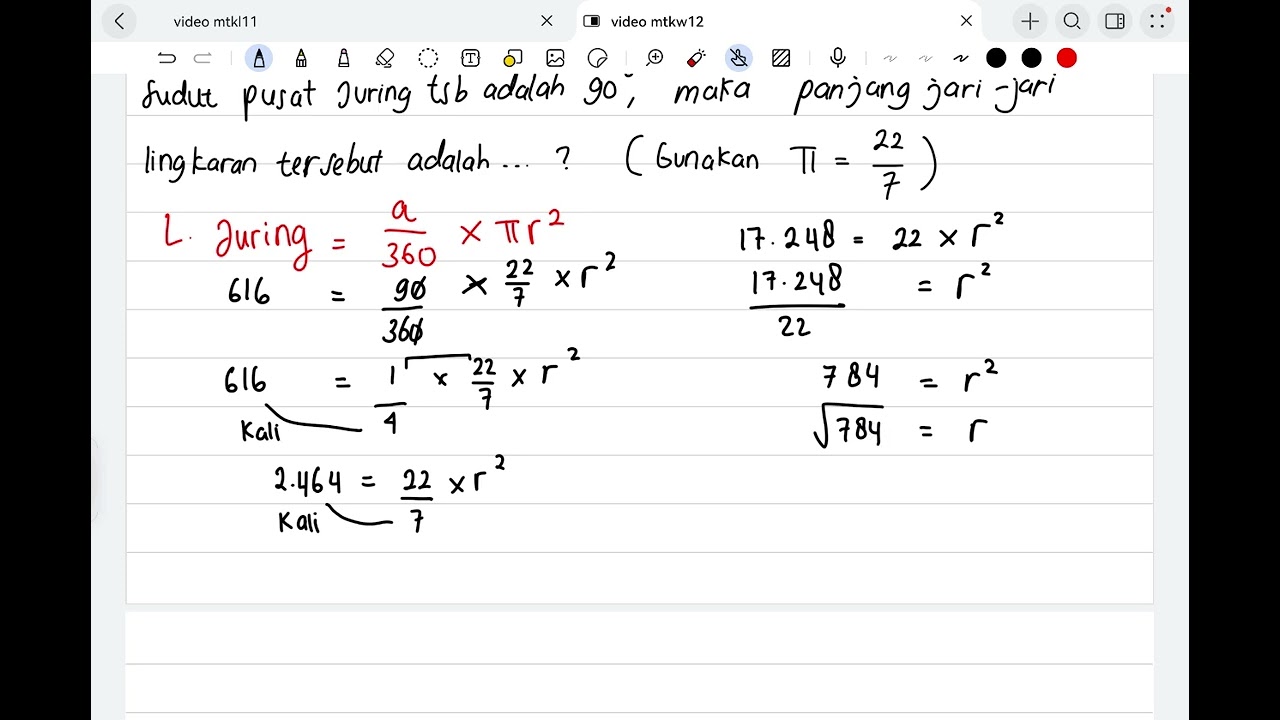 video mtkl11
video mtkw12
sudut pusat Juring tsb adalah 90°, maka panjang jari-jari
lingkaran tersebut adalah ... ? (Gunakan π = 22/7)
L. Juring = a/360 × πr²
616 = 90/360 × 22/7 × r²
616 = 1/4 × 22/7 × r²
Kali
2.464 = 22/7 × r²
Kali
17.248 = 22 × r²
17.248/22 = r²
784 = r²
√784 = r